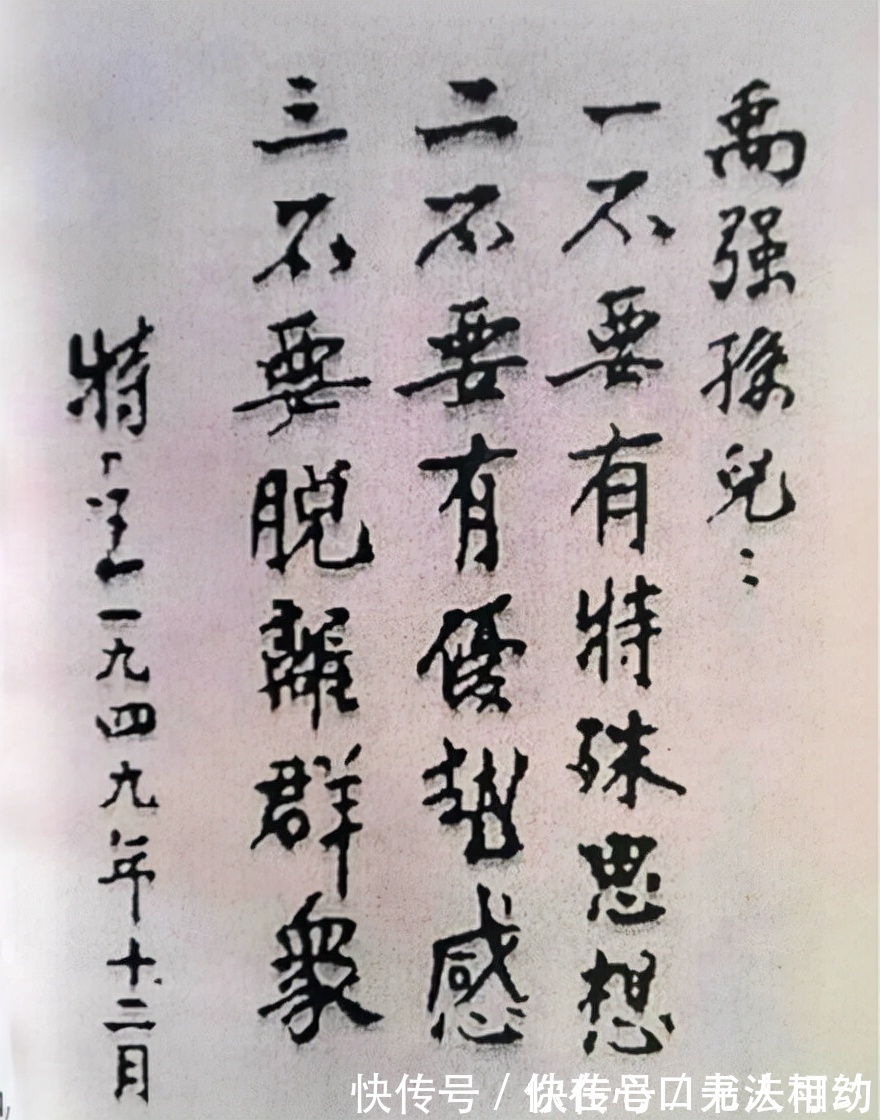 禹强孫兒：
一不要有特殊思想
二不要有優越感
三不要脫離群衆
特
一九四九年十二月
快传号／